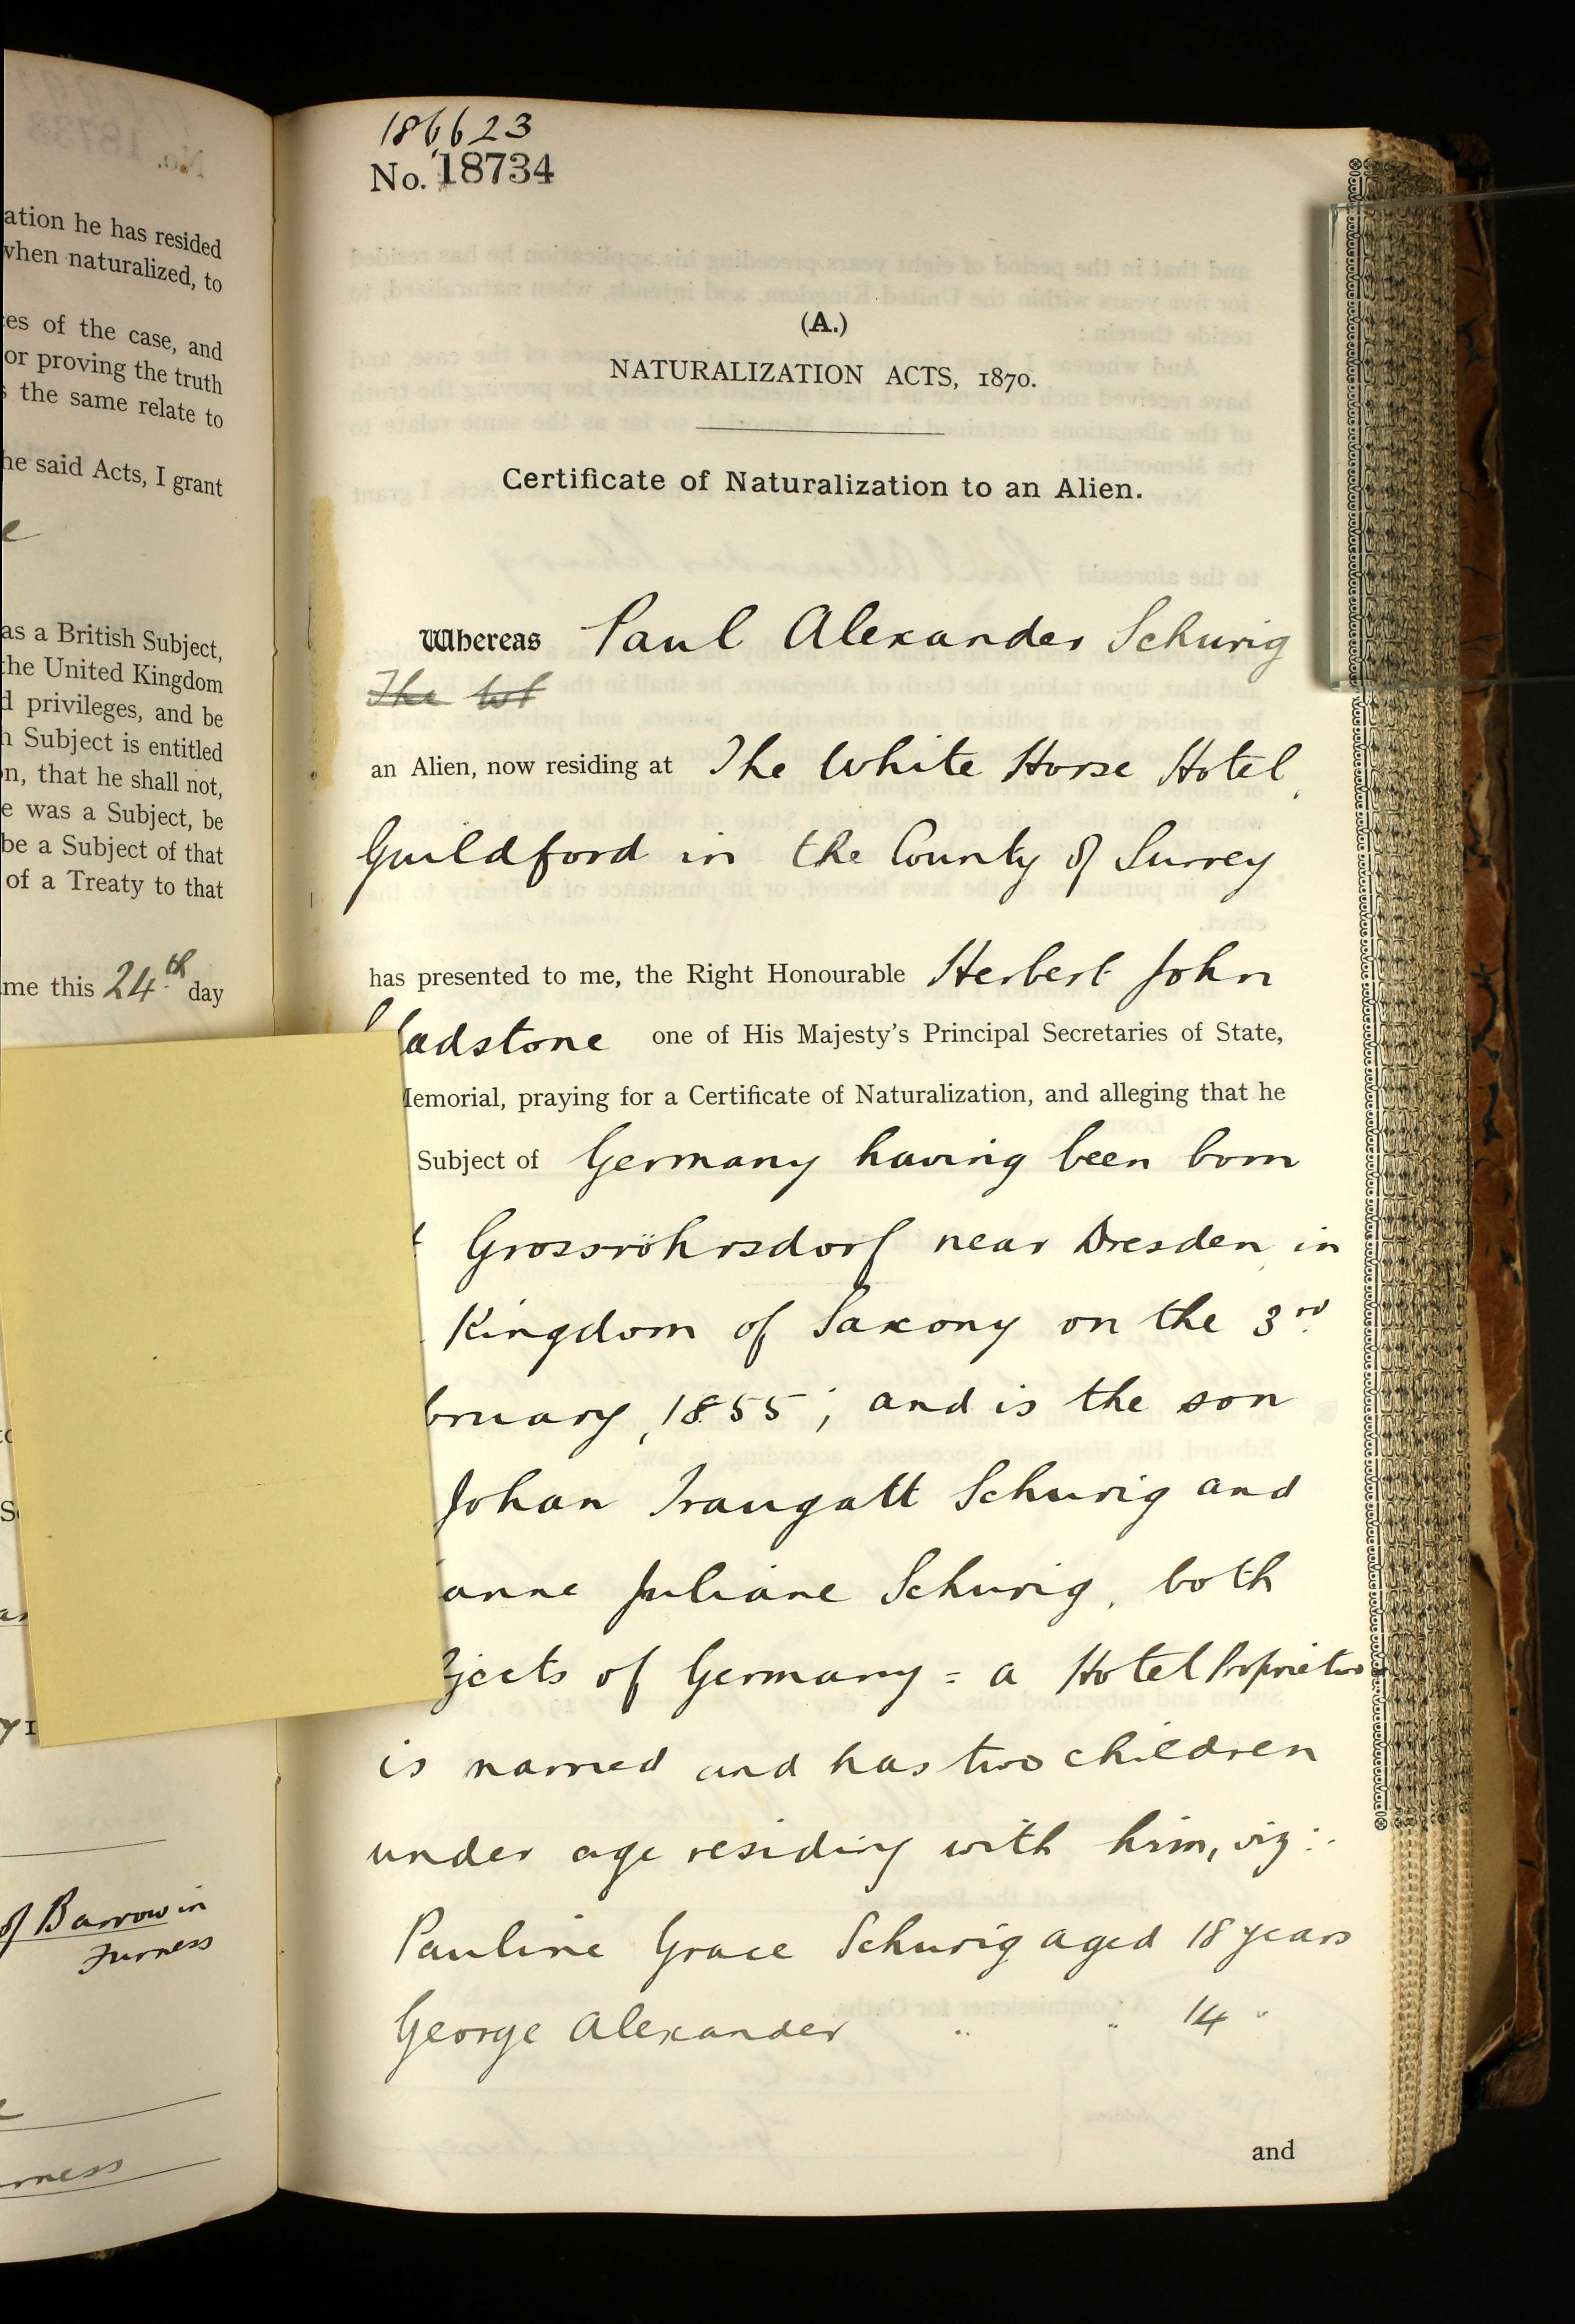 ation he has resided
when naturalized, to
es of the case, and
or proving the truth
the same relate to
he said Acts, I grant
as a British Subject,
the United Kingdom
d privileges, and be
h Subject is entitled
n, that he shall not,
e was a Subject, be
be a Subject of that
of a Treaty to that
me this 24th day
of Barrow in
Furness
186623
No. 18734
(A.)
NATURALIZATION ACTS, 1870.
Certificate of Naturalization to an Alien.
Whereas Paul Alexander Schurig
The Wh
an Alien, now residing at The White Horse Hotel,
Guildford in the County of Surrey
has presented to me, the Right Honourable Herbert John
ladstone one of His Majesty's Principal Secretaries of State,
emorial, praying for a Certificate of Naturalization, and alleging that he
Subject of Germany having been born
Grossröhrsdorf near Dresden, in
Kingdom of Saxony on the 3rd
bruary, 1855; and is the son
Johan Traugatt Schurig and
anne Juliane Schurig, both
jects of Germany = a Hotel Proprietor
is married and has two children
under age residing with him, viz:.
Pauline Grace Schurig aged 18 years
George Alexander " " 14 "
and